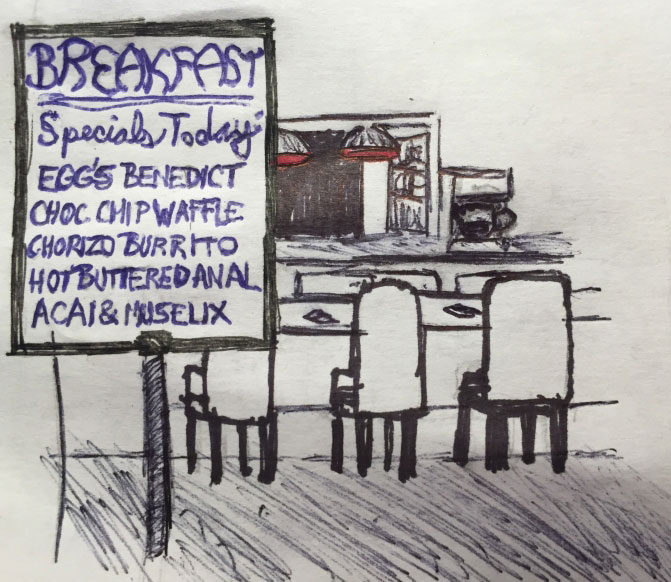 BREAKFAST
Specials Today
EGG'S BENEDICT
CHOC CHIP WAFFLE
CHORIZO BURRITO
HOT BUTTERED ANAL
ACAI & MUSELIX